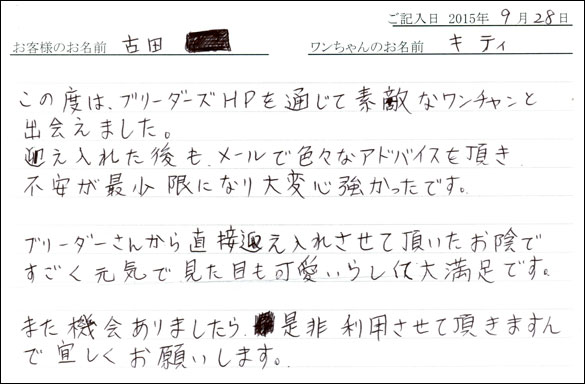 ご記入日 2015年 9月28日
お客様のお名前 古田 ワンちゃんのお名前 キティ
この度は、ブリーダーズHPを通じて素敵なワンチャンと
出会えました。
迎え入れた後も、メールで色々なアドバイスを頂き
不安が最少限になり大変心強かったです。
ブリーダーさんから直接迎え入れさせて頂いたお陰で
すごく元気で見た目も可愛いらしくて大満足です。
また機会ありましたら、是非利用させて頂きますん
で宜しくお願いします。